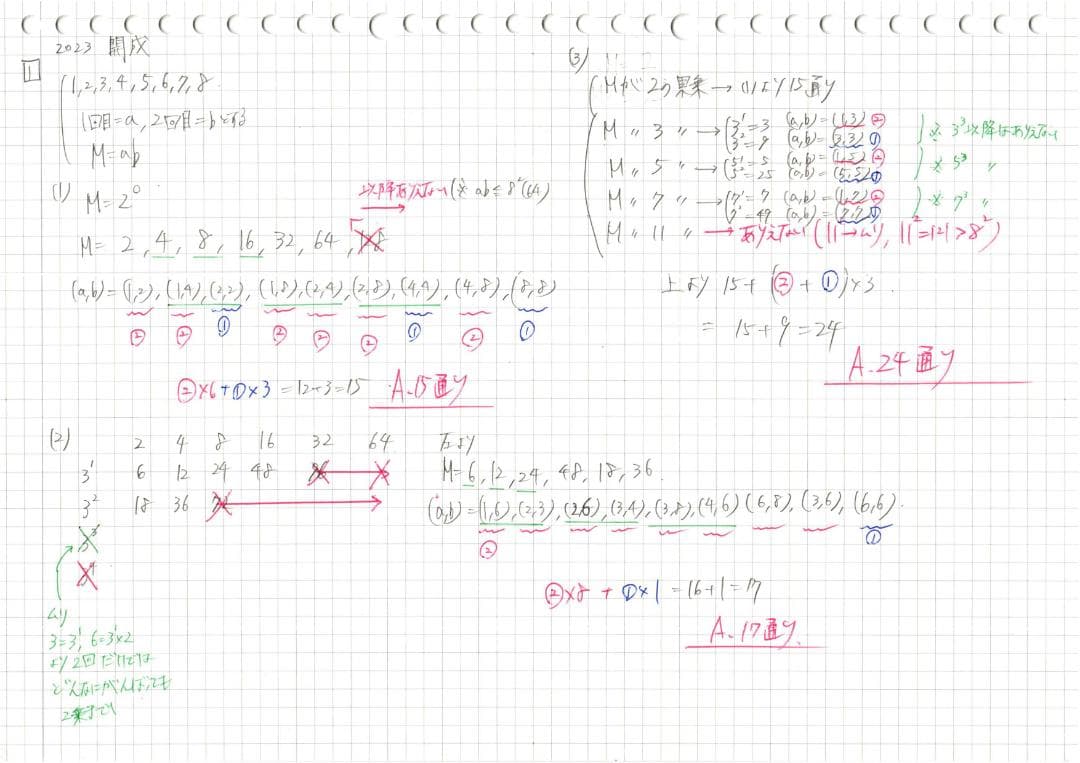 2023 開成
1
1,2,3,4,5,6,7,8
1回目=a, 2回目=bとする
M=ab
(1) M=2⁰
以降ありえない (※ ab≦8²(64)
M= 2, 4, 8, 16, 32, 64, 128
(a,b)=(1,2), (1,4), (2,2), (1,8), (2,4), (2,8), (4,4), (4,8), (8,8)
② ② ① ② ② ② ① ② ①
②×6+①×3=12+3=15 A.15通り
(2) 2 4 8 16 32 64
3¹ 6 12 24 48 96
3² 18 36 72
3³
3⁴
ムリ
3=3¹, 6=3¹×2
より2回だけでは
どんなにがんばっても
2乗まで
左より
M=6,12,24,48,18,36.
(a,b)=(1,6),(2,3),(2,6),(3,4),(3,8),(4,6)(6,8),(3,6),(6,6).
② ①
②×8 + ①×1=16+1=17
A.17通り
(3)
Mが2の累乗→(1)より15通り
M 〃 3 〃 → 3¹=3 (a,b)=(1,3)②
3²=9 (a,b)=(3,3)①
※ 3³以降はありえない
M 〃 5 〃 → 5¹=5 (a,b)=(1,5)②
5²=25 (a,b)=(5,5)①
※ 5³ 〃
M 〃 7 〃 → 7¹=7 (a,b)=(1,7)②
7²=49 (a,b)=(7,7)①
※ 7³ 〃
M 〃 11 〃 → ありえない (11→ムリ, 11²=121>8²)
上より 15+(②+①)×3
= 15+9=24
A.24通り